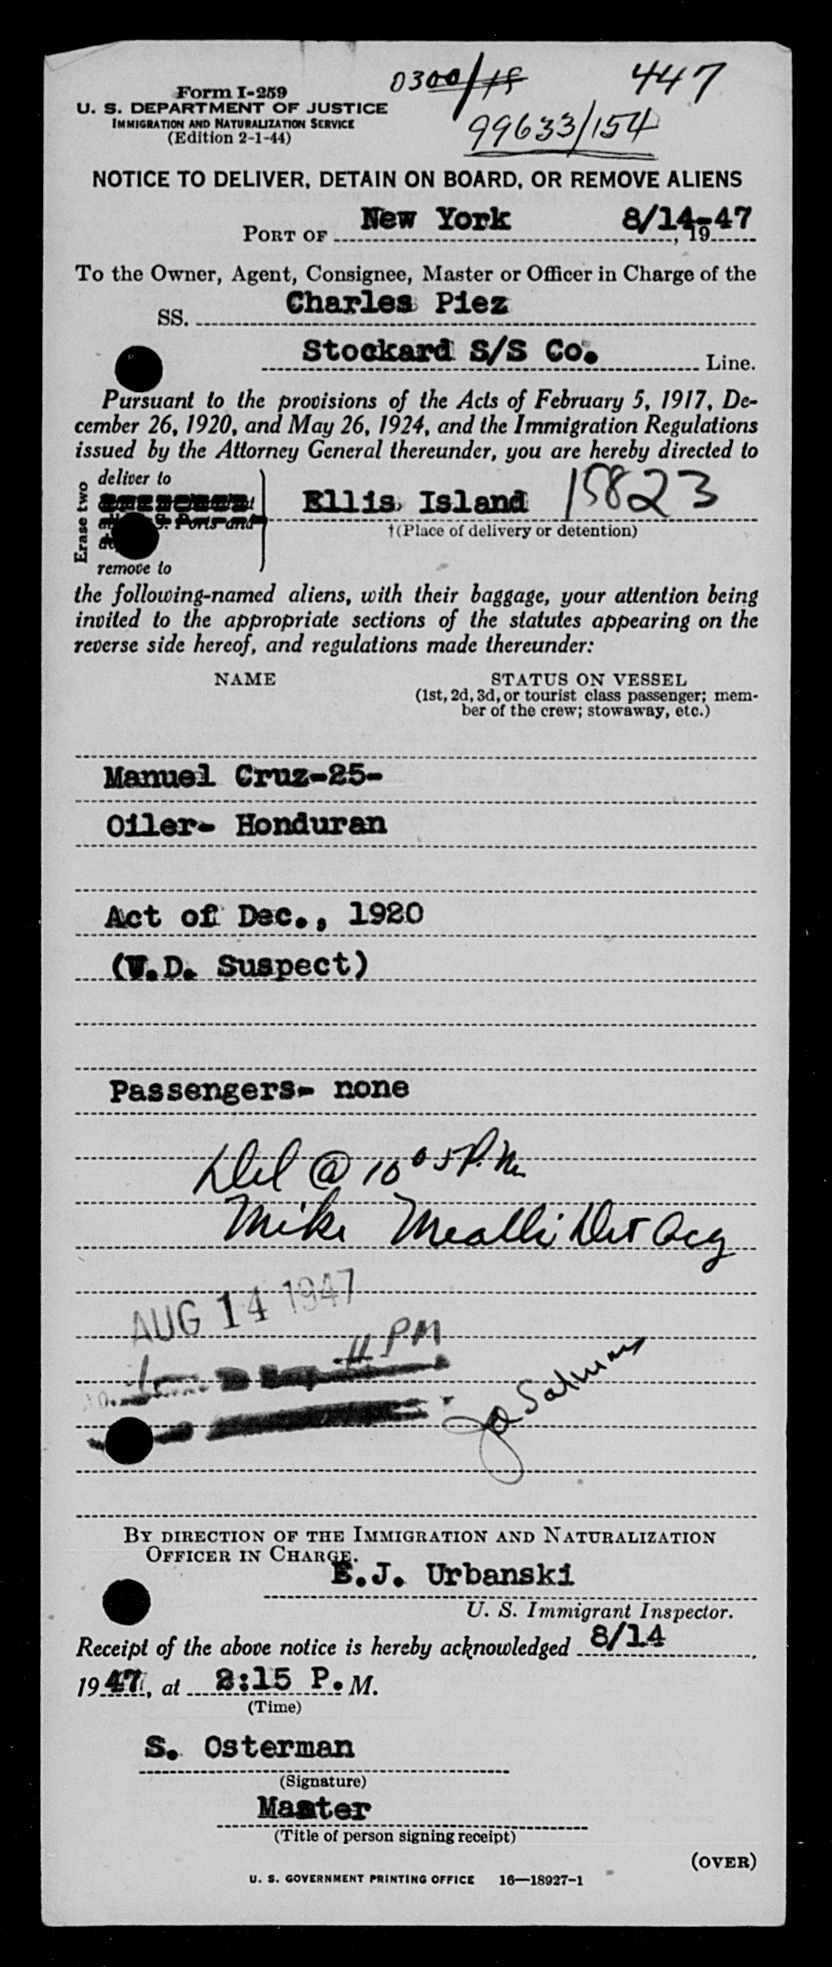 0300/15 447
Form I-259
U. S. DEPARTMENT OF JUSTICE
IMMIGRATION AND NATURALIZATION SERVICE
(Edition 2-1-44)
99633/154
NOTICE TO DELIVER, DETAIN ON BOARD, OR REMOVE ALIENS
PORT OF New York 8/14-47, 19
To the Owner, Agent, Consignee, Master or Officer in Charge of the
SS. Charles Piez
Stockard S/S Co. Line.
Pursuant to the provisions of the Acts of February 5, 1917, De-
cember 26, 1920, and May 26, 1924, and the Immigration Regulations
issued by the Attorney General thereunder, you are hereby directed to
Erase two
deliver to
Ellis Island 15823
S. Ports and
†(Place of delivery or detention)
remove to
the following-named aliens, with their baggage, your attention being
invited to the appropriate sections of the statutes appearing on the
reverse side hereof, and regulations made thereunder:
NAME STATUS ON VESSEL
(1st, 2d, 3d, or tourist class passenger; mem-
ber of the crew; stowaway, etc.)
Manuel Cruz-25-
Oiler- Honduran
Act of Dec., 1920
(V.D. Suspect)
Passengers- none
Del @ 10 05 P.M.
Mike Mealli Det Acy
AUG 14 1947
11 PM
BY DIRECTION OF THE IMMIGRATION AND NATURALIZATION
OFFICER IN CHARGE.
E.J. Urbanski
U. S. Immigrant Inspector.
Receipt of the above notice is hereby acknowledged 8/14,
1947, at 2:15 P. M.
(Time)
S. Osterman
(Signature)
Master
(Title of person signing receipt)
(OVER)
U. S. GOVERNMENT PRINTING OFFICE 16—18927-1